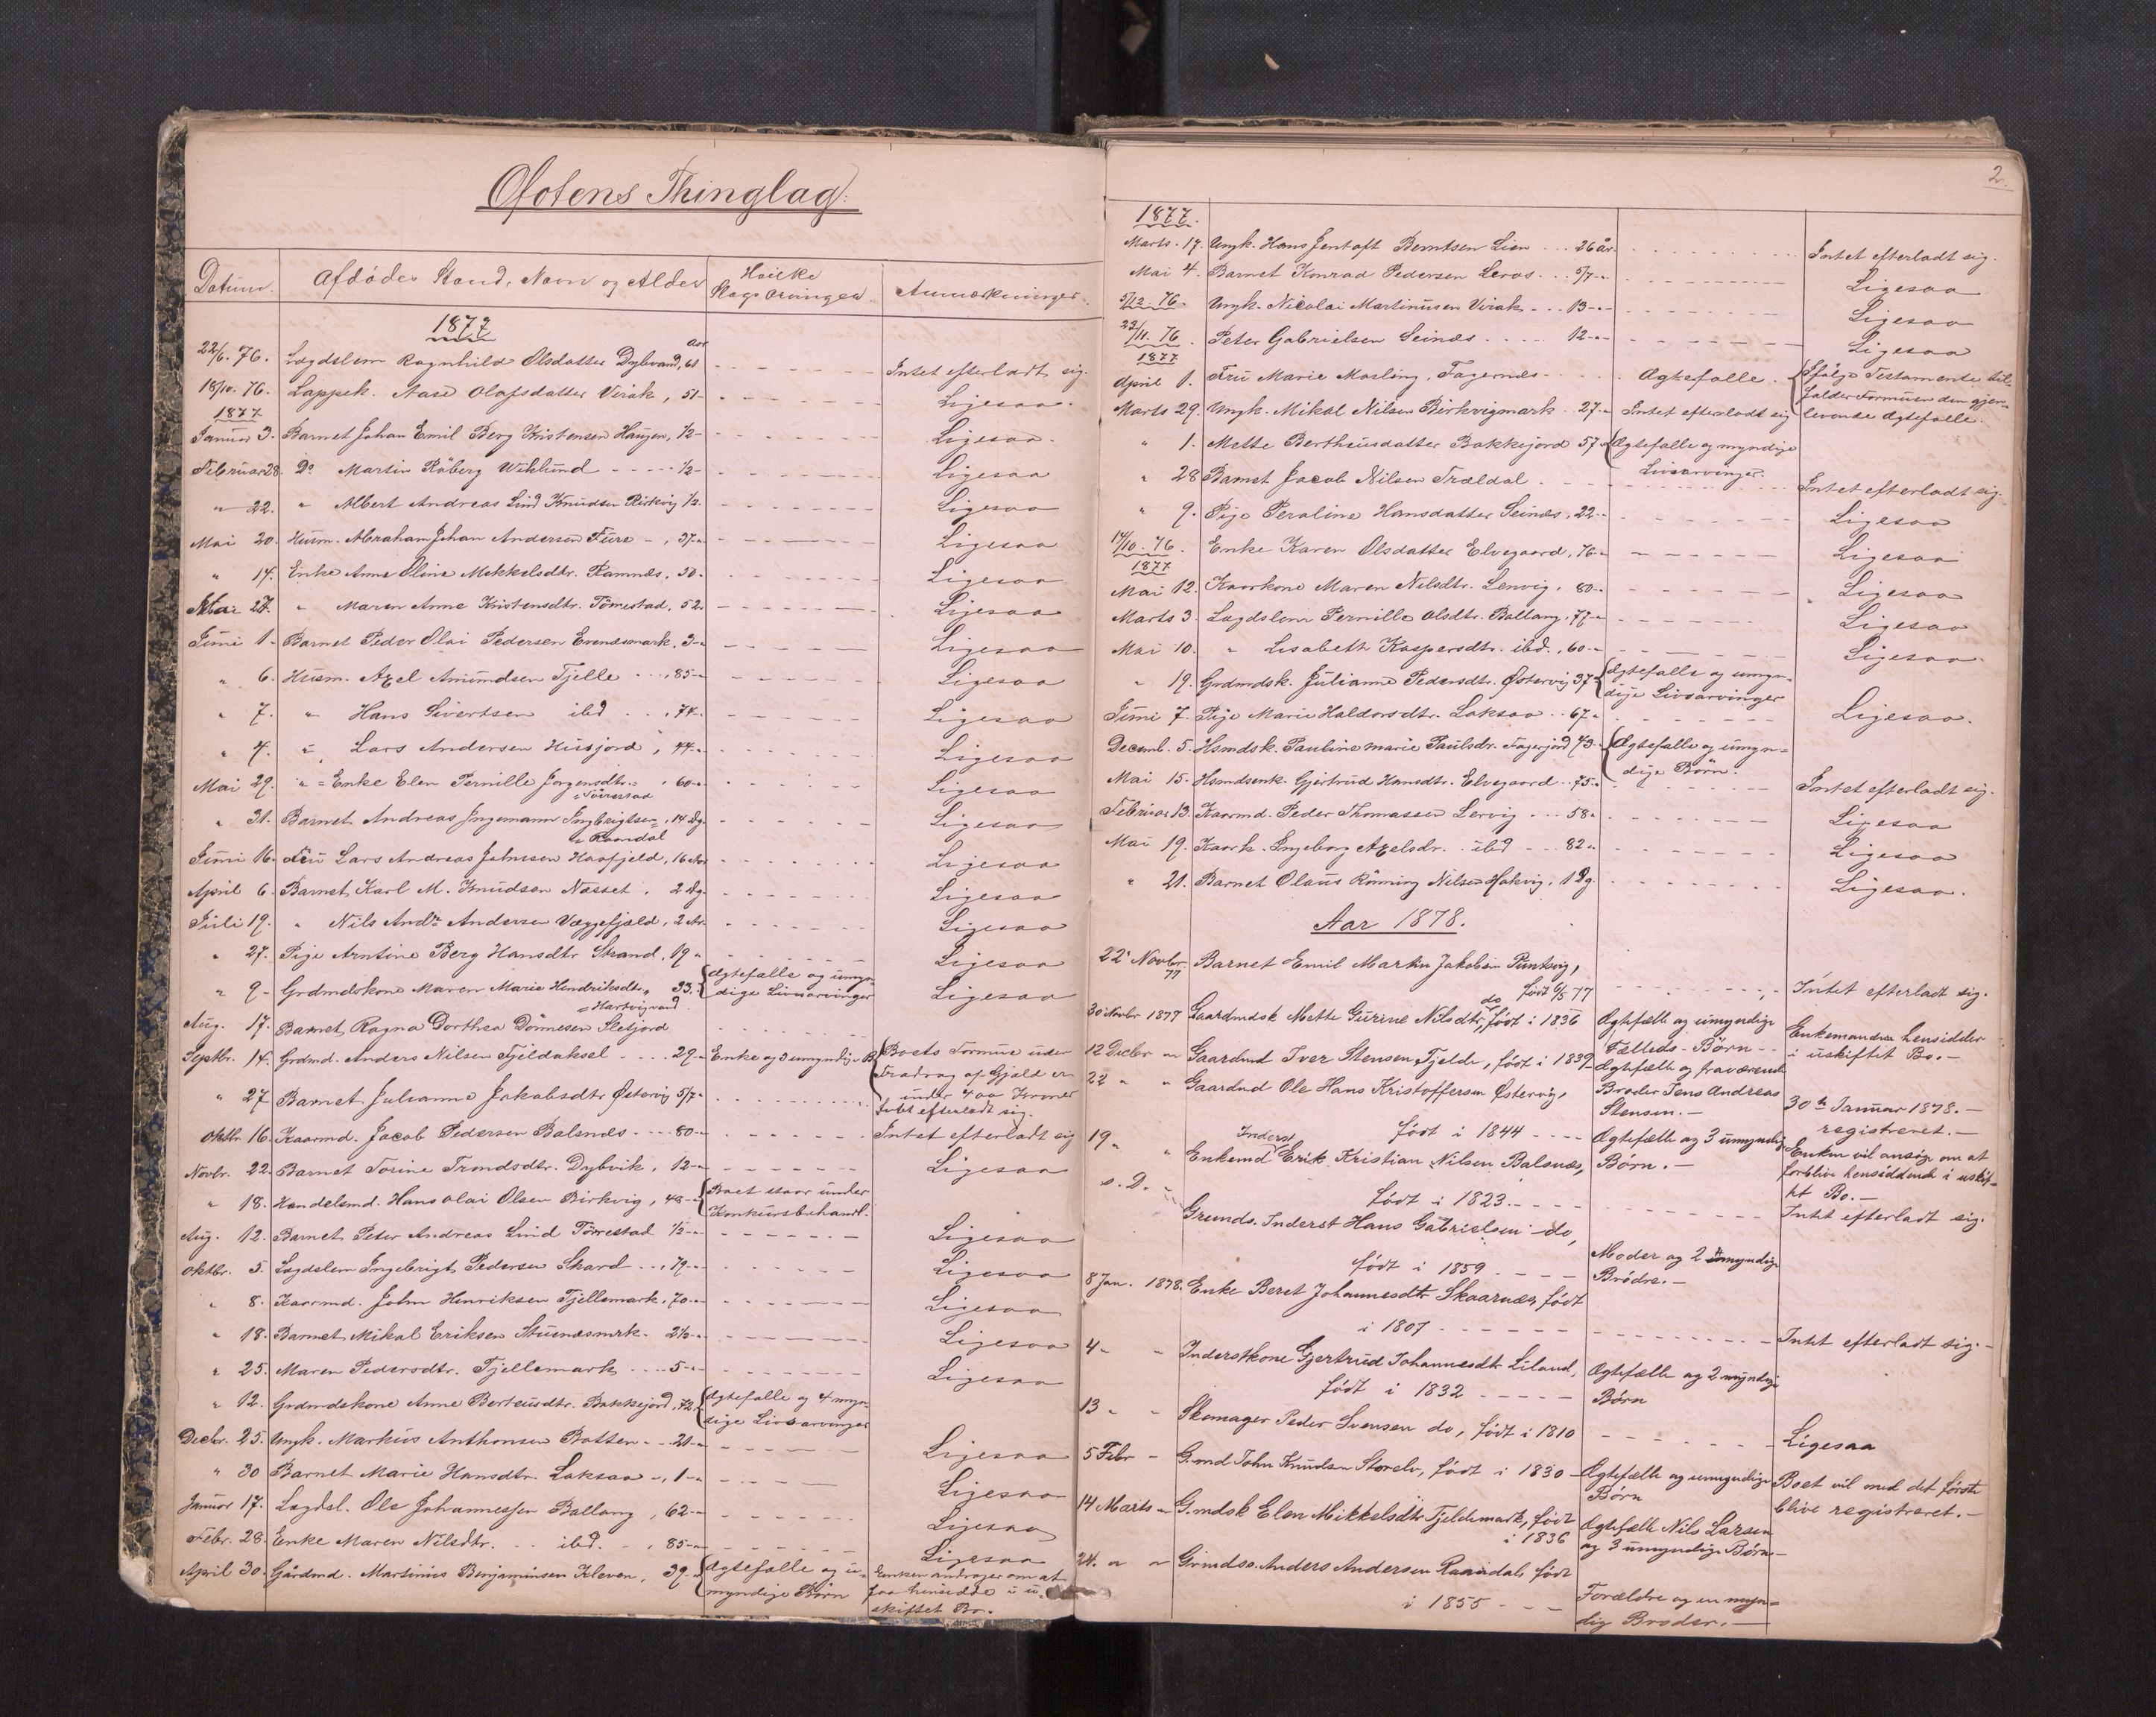 Ofotens Thinglag.
Datum. Afdödes Stand, Navn og Alder Hvilke Slags Arvinger. Anmærkninger.
1877
Aar
22/6. 76. Lægdslem Ragnhild Olsdatter Dybvand, 61 Intet efterladt sig.
18/10. 76. Lappek. Aase Olafsdatter Virak, 51 - Ligesaa.
1877
Januar 3. Barnet Johan Emil Berg Kristensen Haugen, 1/2 - Ligesaa.
Februar 28. Do Martin Råberg Wiklund - - - - 1/2 - Ligesaa
" 22. " Albert Andreas Lind Knudsen Birkvig 1/2. Ligesaa
Mai 20. Husm. Abraham Johan Andersen Fure -, 37 - Ligesaa
" 14. Enke Anne Oline Mekkelsdtr. Ramnæs, 30. Ligesaa
Mai 27. " Maren Anne Kristensdtr. Tömestad, 52. Ligesaa
Juni 1 - Barnet Peder Olai Pedersen Evenæsmark, 3 - Ligesaa
" 6. Husm. Axel Amundsen Fjelle - - -, 85 - Ligesaa
" 7. " Hans Sivertsen ibd - - -, 74. Ligesaa
" 4. " Lars Andersen Husjord, 44 - Ligesaa
Mai 29. " = Enke Elen Pernille Jørgensdtr. = , 60 - Ligesaa
= Törrestad
" 31. Barnet Andreas Ingemann Ingbrigtsen =, 14 Dg. Ligesaa
= Raandal
Juni 16. Lars Andreas Johnsen Haafjeld, 16 Aar Ligesaa
April 6. Barnet Karl M. Knudsen Næsset, 2 Dg. Ligesaa
Juli 19. " Nils Andr. Andersen Væggefjeld, 2 Ar. Ligesaa
" 27. Pige Arntine Berg Hansdtr Strand, 19 " Ligesaa
" 9 - Grdmdskone Maren Marie Hendriksdtr. 33. Ægtefælle og umyn-
= Hartvigvand dige Livsarvinger Ligesaa
Aug. 17. Barnet Ragna Dorthea Dönnesen Sletjord
Septbr. 14. Grdmd. Anders Nilsen Fjeldaksel - - - - 29 - Enke og 3 umyndige B. Boets Formue uden
Fradrag af Gjæld er
under 400 Kroner
" 27 Barnet Julianne Jakobsdtr Østervig 5/7 - Intet efterladt sig.
Oktbr. 16. Kaarmd. Jacob Pedersen Balsnæs - - - 80 - Intet efterladt sig
Novbr. 22. Barnet Torine Trondsdtr. Dybvik, 12 - Ligesaa
" 18. Handelsmd. Hans Olai Olsen Birkvig, 48 - Boet staar under
Konkursbehandl.
Aug. 12. Barnet Peter Andreas Lind Törrestad 1/2 - Ligesaa
Oktbr. 5. Lægdslem Ingebrigt Pedersen Skard - -, 79 - Ligesaa
" 8. Kaarmd. John Henriksen Fjellemark, 70 - Ligesaa
" 18. Barnet Mikal Eriksen Stuenæsmrk. 2 1/2 - Ligesaa
" 25. Maren Pedersdtr. Fjellemark - - - 5 - Ligesaa
" 12. Grdmdskone Anne Berteusdtr. Bakkejord, 72. Ægtefælle og 4 myn-
dige Livsarvinger
Decbr. 25. Ungk. Markus Anthonsen Botten - - 21 - Ligesaa
" 30 Barnet Marie Hansdtr. Laksaa -, 1 - Ligesaa
Januar 17. Lægdsl. Ole Johannessen Ballang, 62 - Ligesaa
Febr. 28. Enke Maren Nilsdtr. - - ibd. -, 85 - Ligesaa
April 30. Gårdmd. Martinus Benjaminsen Kleven, 39. Ægtefælle og u- Enken andrager om at
myndige Børn faa hensidde i u-
skiftet Bo.
2.
1877.
Marts. 17. Ungk. Hans Jentoft Berntsen Lien - - - 26 år. Intet efterladt sig.
Mai 4. Barnet Konrad Pedersen Leros - - - 5/7 - Ligesaa
5/12. 76. Ungk. Nicolai Martinusen Virak - - - 13 - Ligesaa
22/11. 76. Peter Gabrielsen Seinæs - - - - 12 - Ligesaa
1877
April 1. Fru Marie Mosling, Fagernæs - - - - Ægtefælle. Ifølge Testamente til-
falder Formuen den gjen-
Marts 29. Ungk. Mikal Nilsen Birkvigmark - 27 - Intet efterladt sig levende Ægtefælle.
" 1. Mette Bertheusdatter Bakkejord 57 Ægtefælle og myndige
Livsarvinger.
" 28 Barnet Jacob Nilsen Trældal - - - Intet efterladt sig.
" 9. Pige Peraline Hansdatter Seinæs, 22 - Ligesaa
14/10. 76. Enke Karen Olsdatter Elvegaard, 76 - Ligesaa
1877
Mai 12. Kaarkone Maren Nilsdtr. Lervig, 80 - Ligesaa
Marts 3. Lægdslem Pernille Olsdtr. Ballang, 77 - Ligesaa
Mai 10. " Lisabeth Kaspersdtr. ibd., 60 - Ligesaa
" 19. Grdmdsk. Julianne Pedersdtr. Østervig 37 - Ægtefælle og umyn-
dige Livsarvinger
Juni 7. Pige Marie Haldorsdtr. Laksaa - - 67 " Ligesaa.
Decemb. 5. Hsmdsk. Pauline Marie Paulsdr. Fagerjord 43 - Ægtefælle og umyn=
dige Børn.
Mai 15. Hsmdsenk. Gjertrud Hansdtr. Elvegaard - 75 - Intet efterladt sig.
Februar 13. Kaarmd. Peder Thomassen Lervig - - - 58 " Ligesaa
Mai 19. Kaark. Ingeborg Axelsdr. - ibd - - 82 " Ligesaa
" 21. Barnet Olaus Rönning Nilsen Hakvig, 1 Dg. Ligesaa.
Aar 1878.
22' Novbr. 77 Barnet Emil Martin Jakobsen Puntsvig,
født 6/5 77 Intet efterladt sig.
30 Novbr 1877 Gaardmdsk Mette Gurine Nilsdtr, do født i 1836 Ægtefælle og umyndige Enkemanden hensidder
Fælleds-Børn - - i uskiftet Bo. -
12 Decbr " Gaardmd Iver Stensen Fjelde, født i 1839 - Ægtefælle og fraværende
Broder Jens Andreas
Stensen. - 30te Januar 1878. -
registreret. -
22 " " Gaardmd Ole Hans Kristoffersen Østervig,
født i 1844 - - - - Ægtefælle og 3 umyndige Enken vil ansøge om at
Børn. - forblive hensiddende i uskif-
tet Bo. -
19 " " Inderst Enkemd Erik Kristian Nilsen Balsnæs,
født i 1823. - - - - Intet efterladt sig.
s. D. - Grunds. Inderst Hans Gabrielsen do,
født i 1859 - - - - Moder og 2 umyndige
Brödre. -
8 Jan. 1878. Enke Beret Johannesdtr Skaarnæs, født
i 1807 - - - - - - Intet efterladt sig. -
4 - - Inderstkone Gjertrud Johannesdtr Liland,
født i 1832 - - - - - Ægtefælle og 2 myndige
Børn
13 - - Skomager Peder Svensen do, født i 1810 - - - - - - Ligesaa
5 Febr - G.md John Knudsen Storelv, født i 1830 - Ægtefælle og umyndige Boet vil med det første
Børn blive registreret. -
14 Marts " G.mdsk Elen Mikkelsdtr Fjeldemark, født
i 1836 Ægtefælle Nils Larsen
og 3 umyndige Børn -
24. " " Grunds. Anders Andersen Raandal født
i 1855 - - - Forældre og en myn=
dig Broder. -